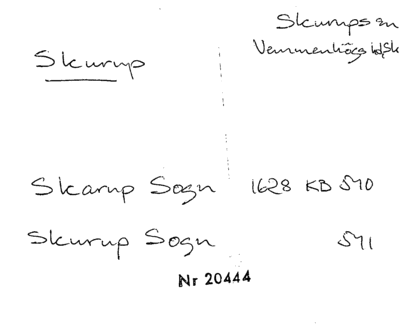 Skurups sn
Vemmenhögs hd, Sk
Skurup
Skarup Sogn 1628 KB 570
Skurup Sogn 571
Nr 20444